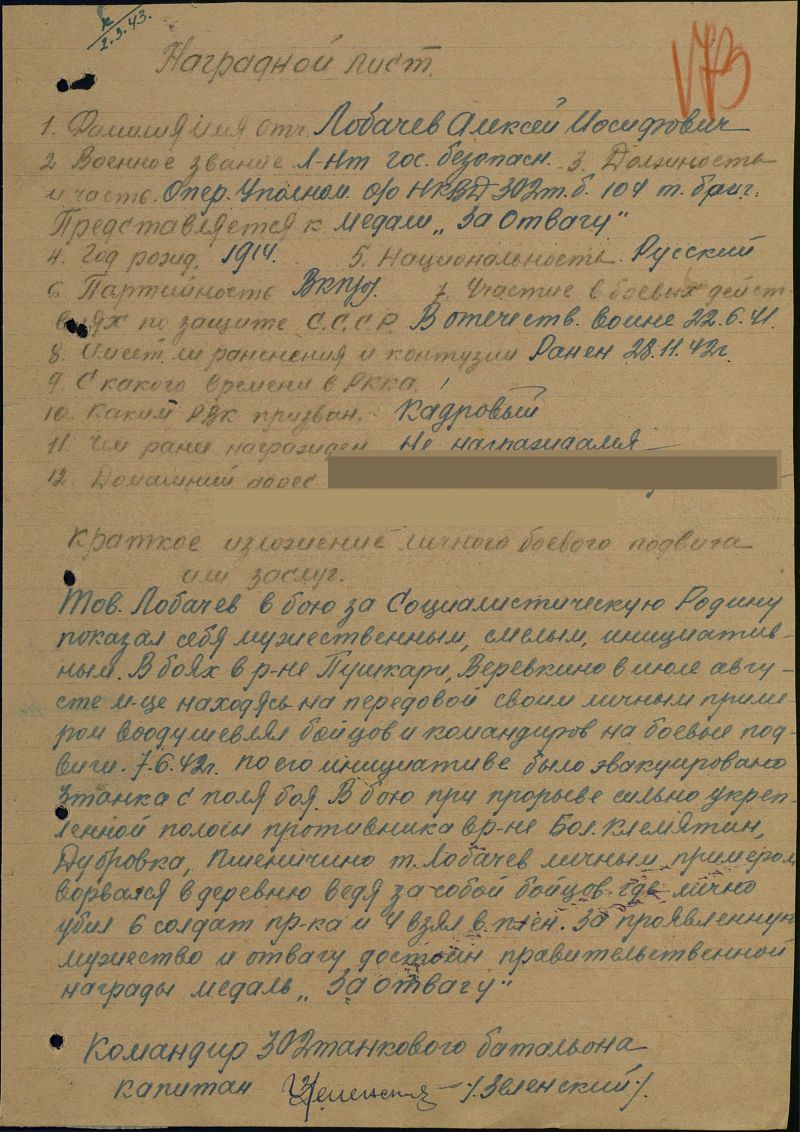 2.3.43.
173
Наградной лист.
1. Фамилия имя отч. Лобачев Алексей Иосифович
2 Военное звание Л-нт гос. безопасн. 3. Должность
и часть. Опер. Уполном. о/о НКВД 302 т.б. 104 т. бриг.
Представляется к медали „За Отвагу"
4. Год рожд. 1914. 5. Национальность. Русский
6 Партийность ВКП/б/. 7. Участие в боевых дейст-
виях по защите С.С.С.Р. В отечеств. воине 22.6.41.
8. Имеет ли раннения и контузии Ранен 28.11.42г.
9. С какого времени в РККА.
10. Каким РВК призван. Кадровый
11. Чем ране награжден Не награждался
12. Домашний адрес
Краткое изложение личного боевого подвига
или заслуг.
Тов. Лобачев в бою за Социалистическую Родину
показал себя мужественным, смелым, инициатив-
ным. В боях в р-не Пушкари, Веревкино в июле авгу-
сте м-це находясь на передовой своим личным приме-
ром воодушевлял бойцов и командиров на боевые под-
виги. 7.6.42г. по его инициативе было эвакуировано
3 танка с поля боя. В бою при прорыве сильно укреп-
ленной полосы противника в р-не Бол. Клемятин,
Дубровка, Пшеничино т. Лобачев личным примером
ворвался в деревню ведя за собой бойцов где лично
убил 6 солдат пр-ка и 4 взял в плен. За проявленную
мужество и отвагу достоин правительственной
награды медаль „За отвагу"
Командир 302 танкового батальона
капитан Зеленский /Зеленский/.